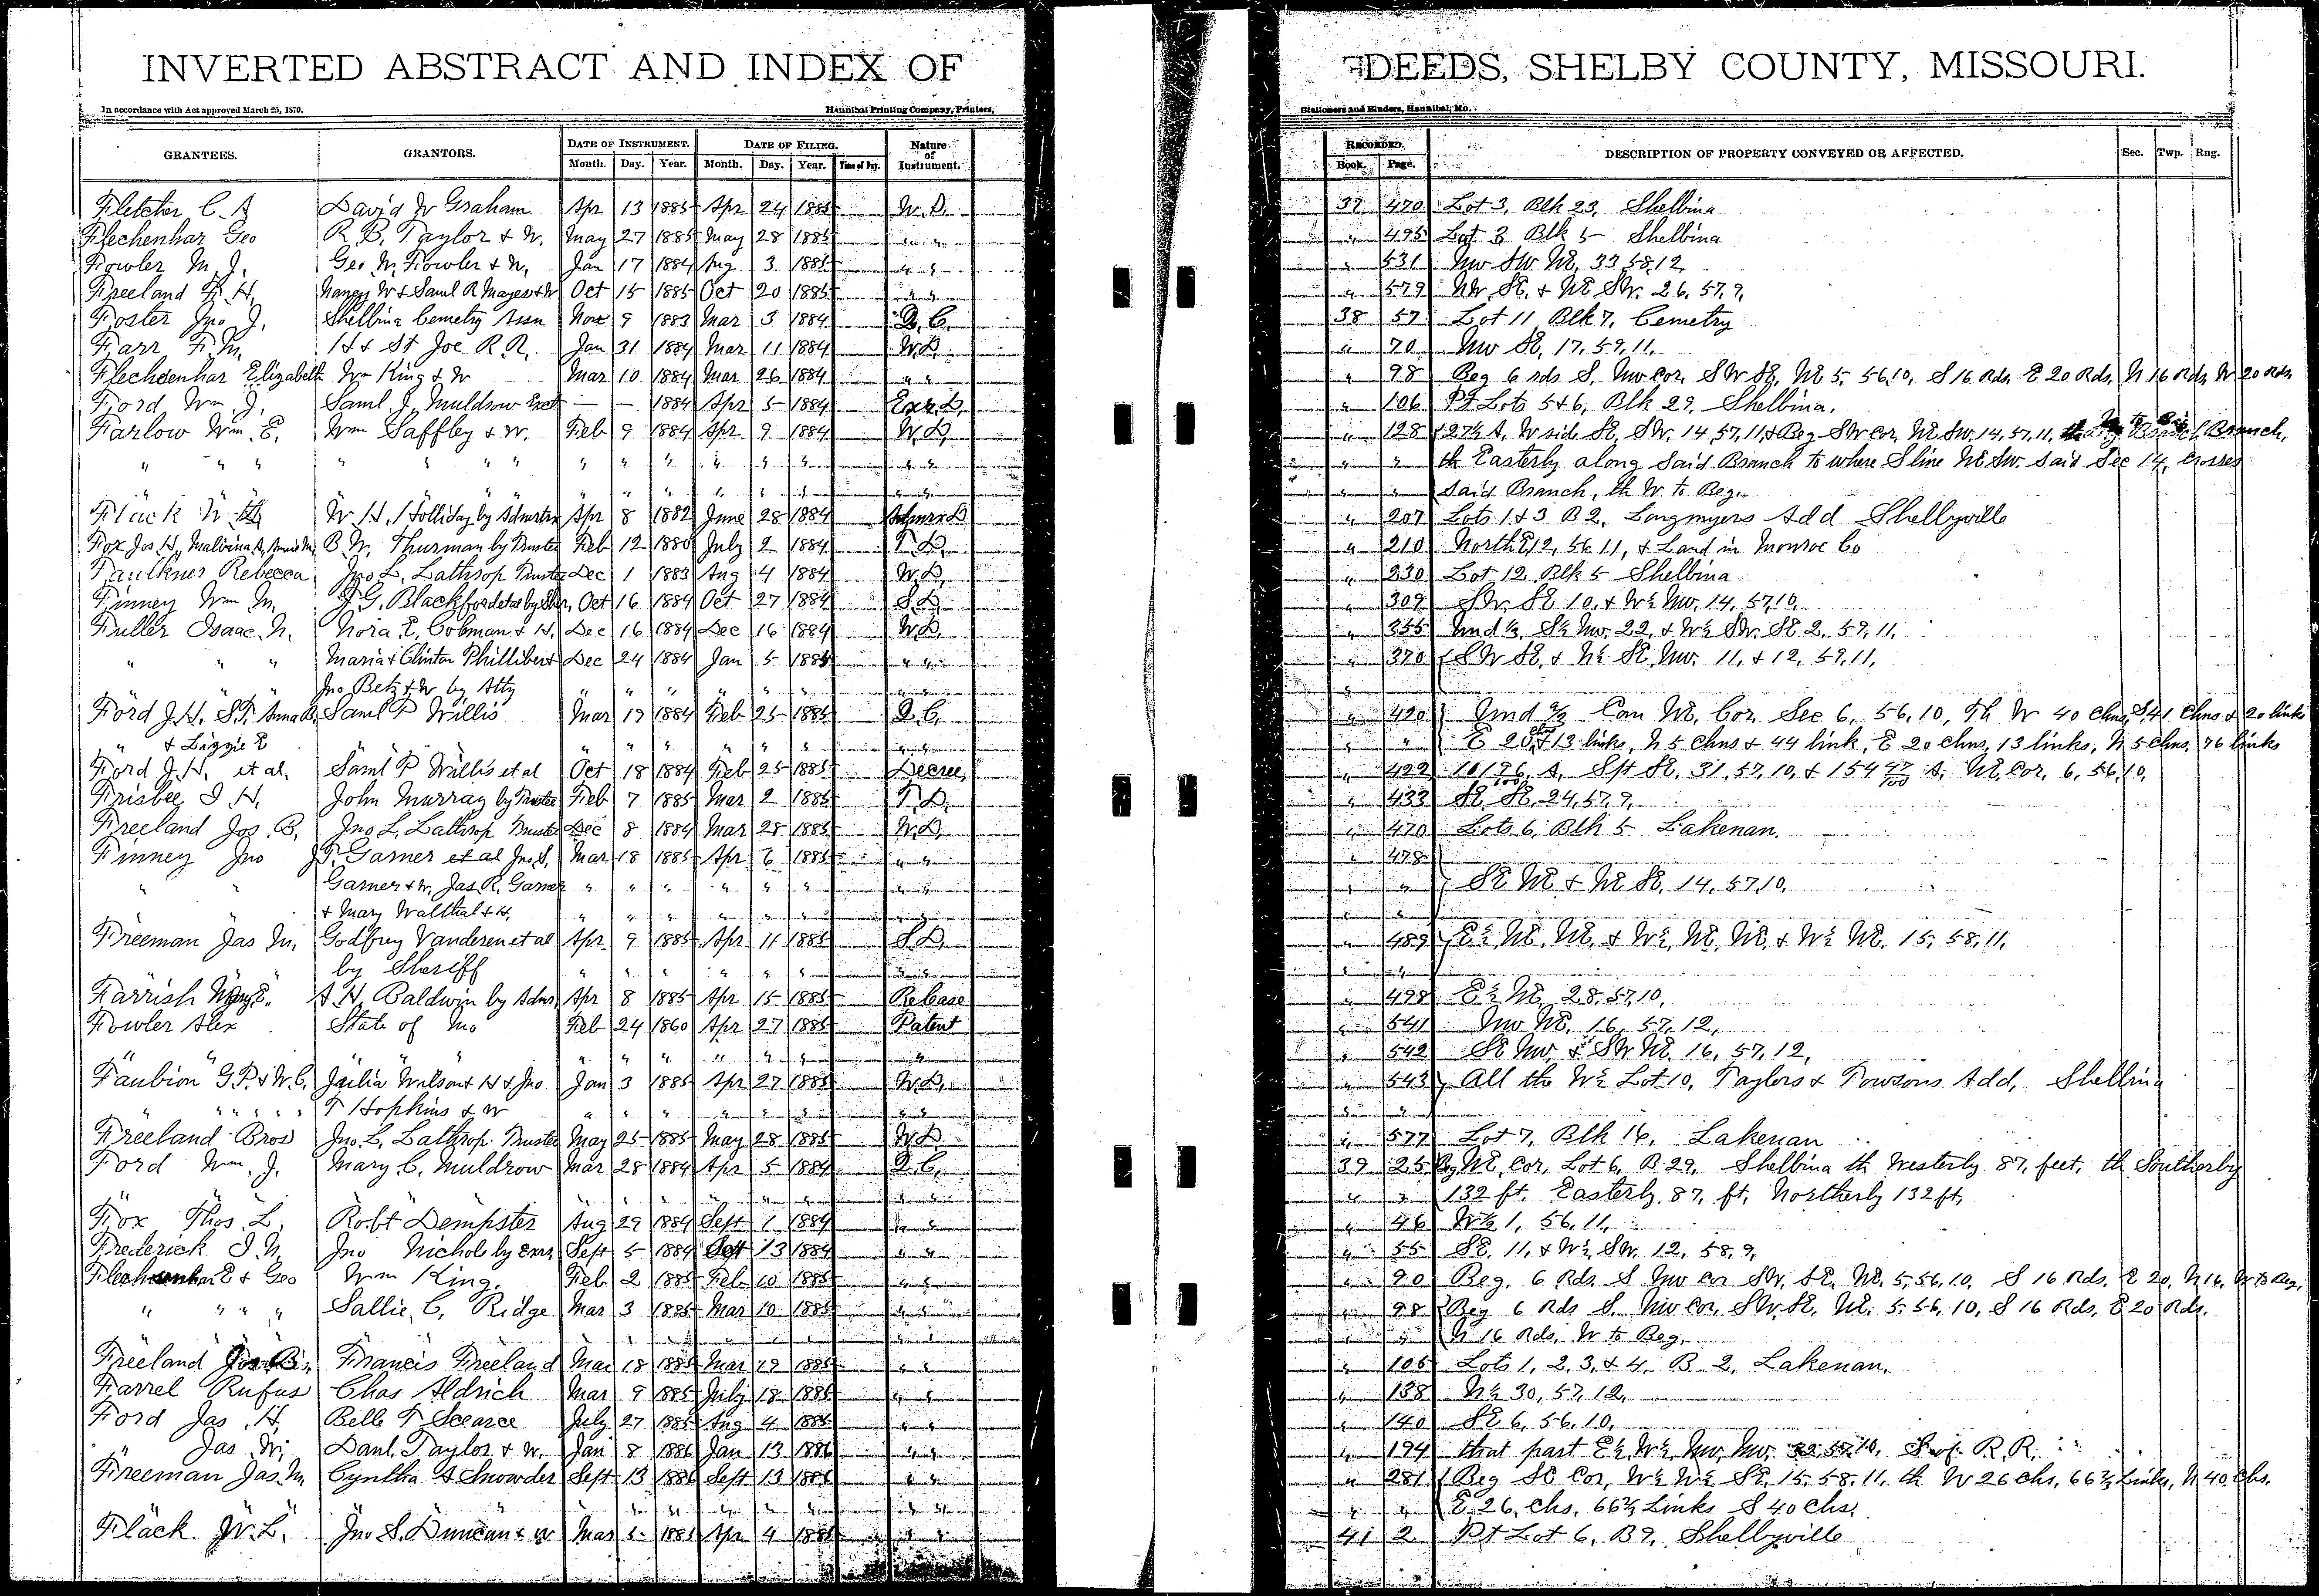 INVERTED ABSTRACT AND INDEX OF DEEDS, SHELBY COUNTY, MISSOURI.
In accordance with Act approved March 25, 1870. Hannibal Printing Company, Printers, Stationers and Binders, Hannibal, Mo.
GRANTEES. GRANTORS. DATE OF INSTRUMENT. DATE OF FILING. Nature of Instrument. RECORDED. DESCRIPTION OF PROPERTY CONVEYED OR AFFECTED. Sec. Twp. Rng.
Month. Day. Year. Month. Day. Year. Time of Day. Book. Page.
Fletcher C. A David W Graham Apr 13 1885 Apr 24 1885 W. D. 37 470 Lot 3, Blk 23, Shelbina
Flechenhar Geo R. B. Taylor & W. May 27 1885 May 28 1885 " " " 495 Lot 3 Blk 5 Shelbina
Fowler M. J. Geo M. Fowler & W. Jan 17 1884 Aug 3 1885 " " " 531 NW SW NE, 33, 58, 12
Freeland F. H. Nancy W & Saml R Mayes & W Oct 15 1885 Oct 20 1885 " " " 579 NW, SE, & NE SW. 26, 57, 9,
Foster Jno J. Shelbina Cemetry Assn Nov 9 1883 Mar 3 1884 Q. C. 38 57 Lot 11 Blk 7, Cemetry
Farr F. M. H & St Joe R. R. Jan 31 1884 Mar 11 1884 W. D. " 70 NW SE, 17, 59, 11,
Flechsenhar Elizabeth Wm King & W Mar 10 1884 Mar 26 1884 " " " 98 Beg 6 rds S. NW cor. SW SE, NE 5, 56, 10, S 16 Rds. E 20 Rds. N 16 Rds. W 20 Rds.
Ford Wm. J. Saml. J. Muldrow Exct — — 1884 Apr 5 1884 Exr. D. " 106 Pt Lots 5 & 6, Blk 29, Shelbina.
Farlow Wm. E. Wm Saffley & W. Feb 9 1884 Apr 9 1884 W. D. " 128 27½ A, W sid SE, SW. 14, 57, 11, & Beg SW cor, NE SW. 14, 57, 11, Branch,
" " " " " " " " " " " " " " " " " " th Easterly along Said Branch to where S line NE SW. said Sec 14, Crosses
" " " " " " " " " " " Said Branch, th W to Beg.
Flack W. W. H. Holliday by Admrtrx Apr 8 1882 June 28 1884 Admrx D " 207 Lots 1 & 3 B 2, Longmyers Add Shelbyville
Fox Jos H, Malvina A, B. W. Thurman by Trustee Feb 12 1880 July 2 1884 T. D. " 210 North E 12, 56 11, & Land in Monroe Co
Faulkner Rebecca Jno L. Lathrop Trustee Dec 1 1883 Aug 4 1884 W. D. " 230 Lot 12 Blk 5 Shelbina
Finney Wm M. J. G. Blackford et al by Sher. Oct 16 1884 Oct 27 1884 S. D. " 309 SW. SE 10, & W½ NW, 14, 57, 10,
Fuller Isaac N. Nora E. Cobman & H. Dec 16 1884 Dec 16 1884 W. D. " 355 Und ⅓, S½ NW. 22, & W½ SW. SE 2, 59, 11,
" " " Maria & Clinton Phillibert Dec 24 1884 Jan 5 1885 " " " 370 SW SE, & N½ SE, NW. 11, & 12, 59, 11,
Jno Betz & W by Atty " " " " " "
Ford J. H. S. F. Anna B. Saml P Willis Mar 19 1884 Feb 25 1885 Q. C. " 420 Und ⅔ Com NE. Cor. Sec 6, 56, 10, Th W 40 Chns, S 41 Chns & 20 links
" & Lizzie E " " " " " " " " " " E 20 ch & 13 links, N 5 Chns & 44 link, E 20 chns, 13 links, N 5 Chns, 76 links
Ford J. H. et al. Saml P Willis et al Oct 18 1884 Feb 25 1885 Decree, " 422 10 176/100 A. S pt SE. 31, 57, 10, & 154 47/100 A. NE, Cor. 6, 56, 10,
Frisbee I. H. John Murray by Trustee Feb 7 1885 Mar 2 1885 T. D. " 433 SE SE, 24, 57, 9,
Freeland Jos. B. Jno L. Lathrop Trustee Dec 8 1884 Mar 28 1885 W. D. " 470 Lots 6, Blk 5 Lakenan,
Finney Jno J. P. Garner et al Jno. S. Mar 18 1885 Apr 6 1885 " " " 478
" " Garner & W. Jas. R. Garner " " " " " " " " " " SE NE & NE SE, 14, 57, 10,
& Mary Walthal & H. " " " " " "
Freeman Jas M. Godfrey Vanderen et al Apr 9 1885 Apr 11 1885 S. D. " 489 E½ NE, NE, & W½, NE, NE, & W½ NE. 15, 58, 11,
by Sheriff " " " " " "
Farrish A. H. Baldwin by Admr Apr 8 1885 Apr 15 1885 Release " 498 E½ NE, 28, 57, 10,
Fowler Alex State of Mo Feb 24 1860 Apr 27 1885 Patent " 541 NW NE, 16, 57, 12,
" " " " " " " " " " " " 542 SE NW, & SW NE. 16, 57, 12,
Faubion G. P. & W. C. Julia Wilson & H & Jno Jan 3 1885 Apr 27 1885 W. D. " 543 All the W½ Lot 10, Taylors & Towsons Add, Shelbina
" " " " " F Hopkins & W " " " " " "
Freeland Bros Jno. L. Lathrop Trustee May 25 1885 May 28 1885 W. D " 577 Lot 7, Blk 16, Lakenan
Ford Wm. J. Mary C. Muldrow Mar 28 1884 Apr 5 1884 Q. C. 39 25 Beg NE, Cor, Lot 6, B 29, Shelbina th Westerly 87, feet, th Southerly
" " " " " " " " " " 132 ft. Easterly 87, ft, Northerly 132 ft,
Fox Thos. L. Robt Dempster Aug 29 1884 Sept 1 1884 " " " 46 W½ 1, 56, 11,
Frederick I. N. Jno Nichols by Exrs Sept 5 1884 Sept 13 1884 " " " 55 SE. 11, & W½ SW. 12, 58, 9,
Flechsenhar E & Geo Wm King. Feb 2 1885 Feb 10 1885 " " " 90 Beg. 6 Rds S NW cor SW. SE, NE, 5, 56, 10, S 16 Rds, E 20, N 16, W to Beg,
" " " " Sallie, C. Ridge Mar 3 1885 Mar 10 1885 " " " 98 Beg 6 Rds S. NW cor. SW. SE, NE. 5, 56, 10, S 16 Rds, E 20 Rds.
" " " " " " " " N 16 Rds, W to Beg,
Freeland Jos B. Francis Freeland Mar 18 1885 Mar 19 1885 " " " 106 Lots 1, 2, 3, & 4, B 2, Lakenan,
Farrel Rufus Chas Aldrich Mar 9 1885 July 18 1885 " " " 138 N½ 30, 57, 12,
Ford Jas. H. Belle F Scearce July 27 1885 Aug 4 1885 " " " 140 SE 6, 56, 10,
" Jas W. Danl. Taylor & W. Jan 8 1886 Jan 13 1886 " " " 194 that part E½, W½, NW, NW, S of R. R.
Freeman Jas. M Cyntha A Snowder Sept 13 1886 Sept 13 1886 " " " 281 Beg SE Cor, W½ W½ SE, 15, 58, 11, th W 26 chs, 66⅔ Links, N 40 Chs.
" " " " " " " " " E 26, Chs, 66⅔ Links S 40 Chs.
Flack W. L. Jno S. Duncan & W Mar 5 1885 Apr 4 1885 " " 41 2 Pt Lot 6, B 9, Shelbyville